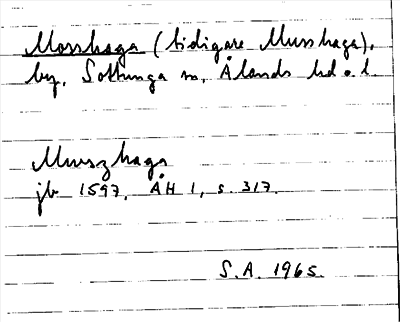 Mosshaga (tidigare Musshaga),
by, Sottunga sn, Ålands hd o. l.
Muszhaga
jb 1597, ÅH 1, s. 317.
S.A. 1965.